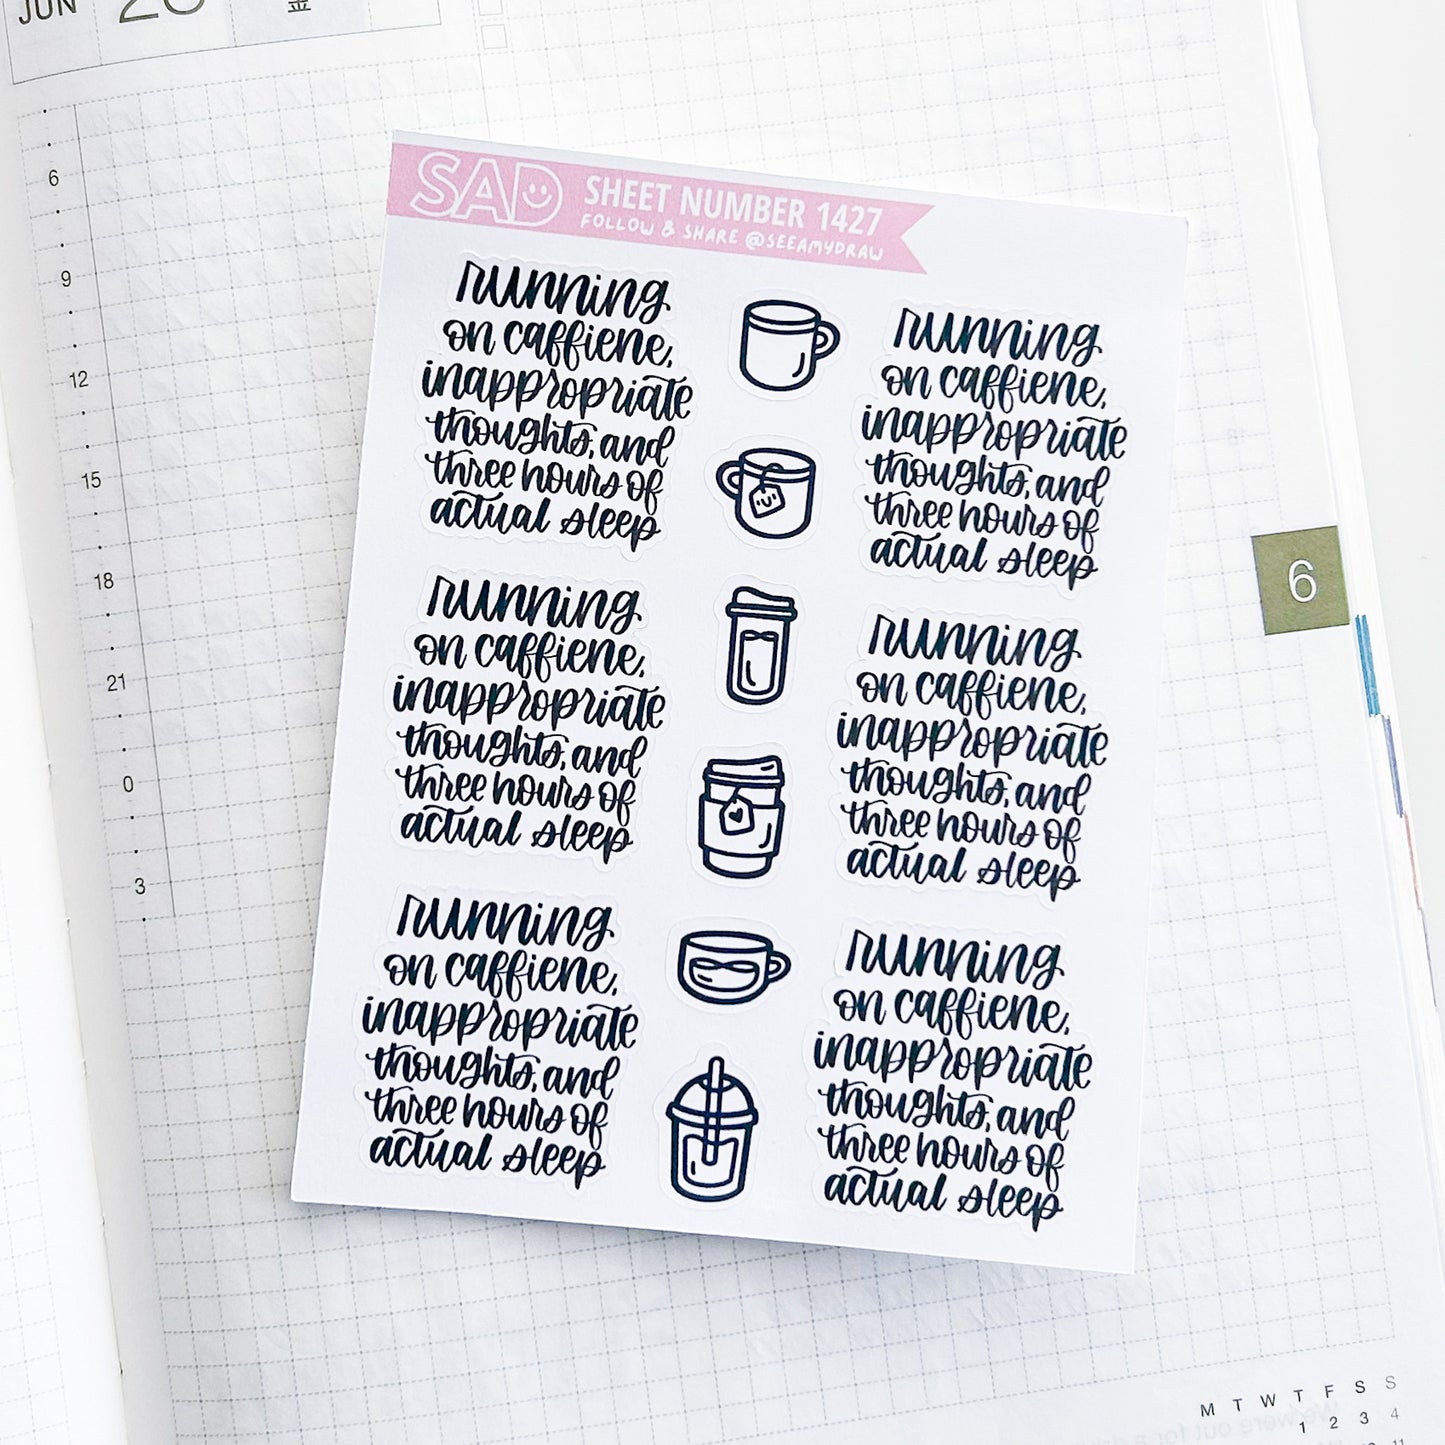 JUN 20 金
6
9
12
15
18
21
0
3
SAD SHEET NUMBER 1427
FOLLOW & SHARE @SEEAMYDRAW
running
on caffiene,
inappropriate
thoughts, and
three hours of
actual sleep
running
on caffiene,
inappropriate
thoughts, and
three hours of
actual sleep
running
on caffiene,
inappropriate
thoughts, and
three hours of
actual sleep
running
on caffiene,
inappropriate
thoughts, and
three hours of
actual sleep
running
on caffiene,
inappropriate
thoughts, and
three hours of
actual sleep
running
on caffiene,
inappropriate
thoughts, and
three hours of
actual sleep
6
M T W T F S S
1 2 3 4